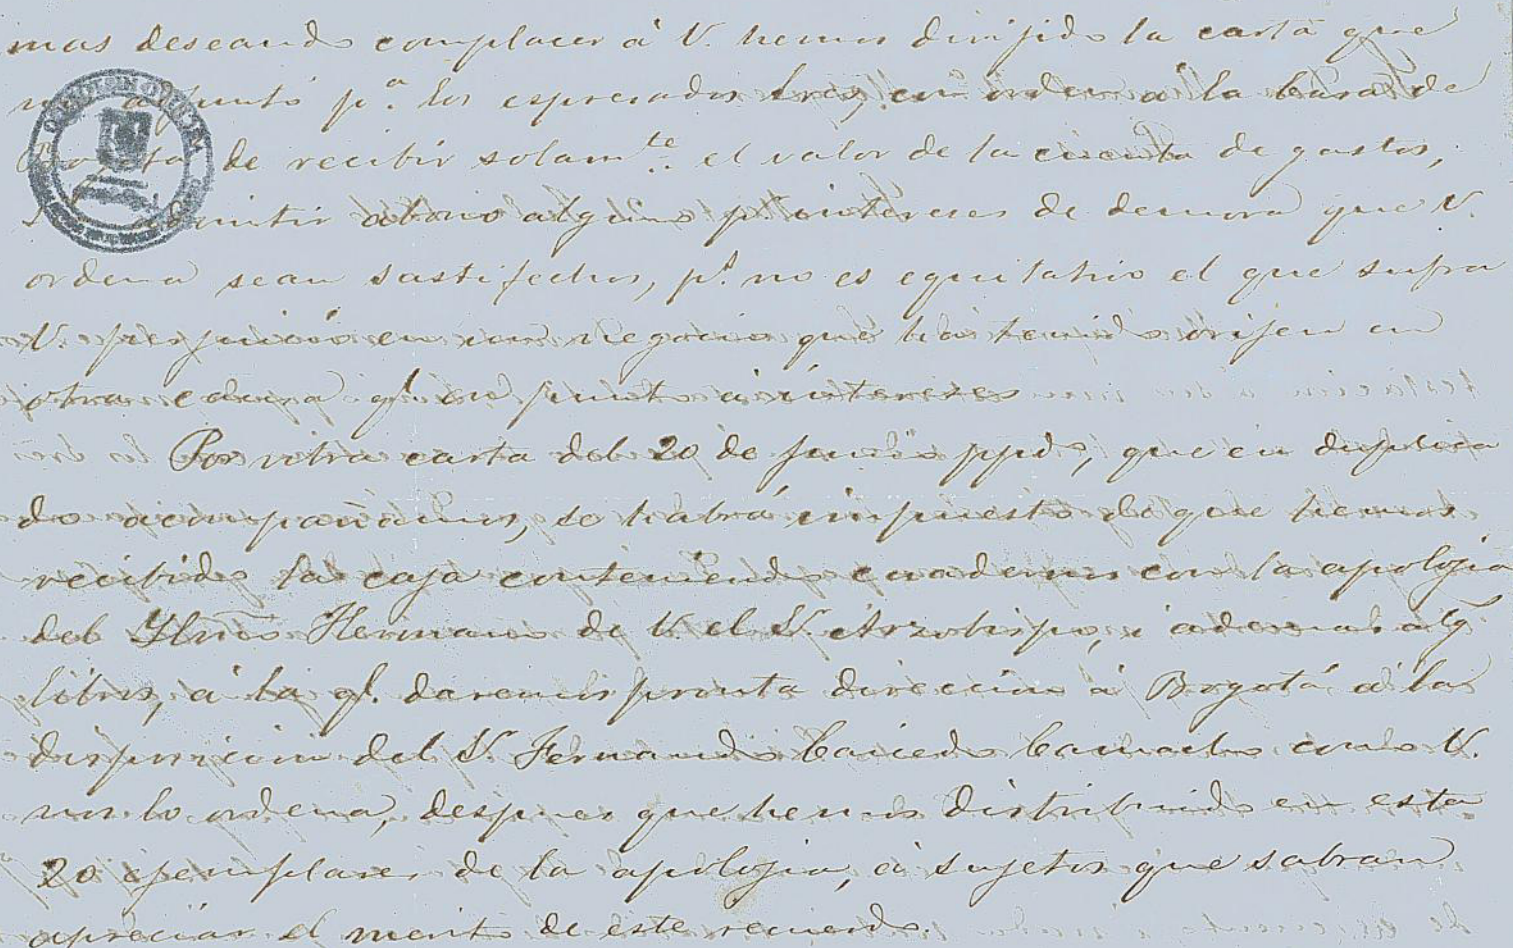 mas deseando complacer á V. hemos dirijido la carta que
adjunto p.ª los espresados Sres, en orden á la Casa de
Bogotá de recibir solam.te el valor de la cuenta de gastos,
admitir abono alguno p.r intereses de demora que V.
ordena sean sastifechos, p.s no es equitativo el que sufra
V. perjuicio en un negocio que ha tenido orijen en
otra causa q.e en punto á intereses
Por ntra carta del 20 de Junio ppdo, que en duplica
do acompañamos, se habrá impuesto de que hemos
recibido la caja conteniendo cuadernos con la apolojia
del Yllmo Hermano de V. el S.r Arzobispo, i ademas alg.s
libros, á la q.l daremos pronta direccion á Bogotá á la
disposicion del S.r Fernando Caicedo Camacho como V.
nos lo ordena, despues que hemos distribuido en esta
20 ejemplares de la apolojia, á sujetos que sabran
apreciar el merito de este recuerdo.